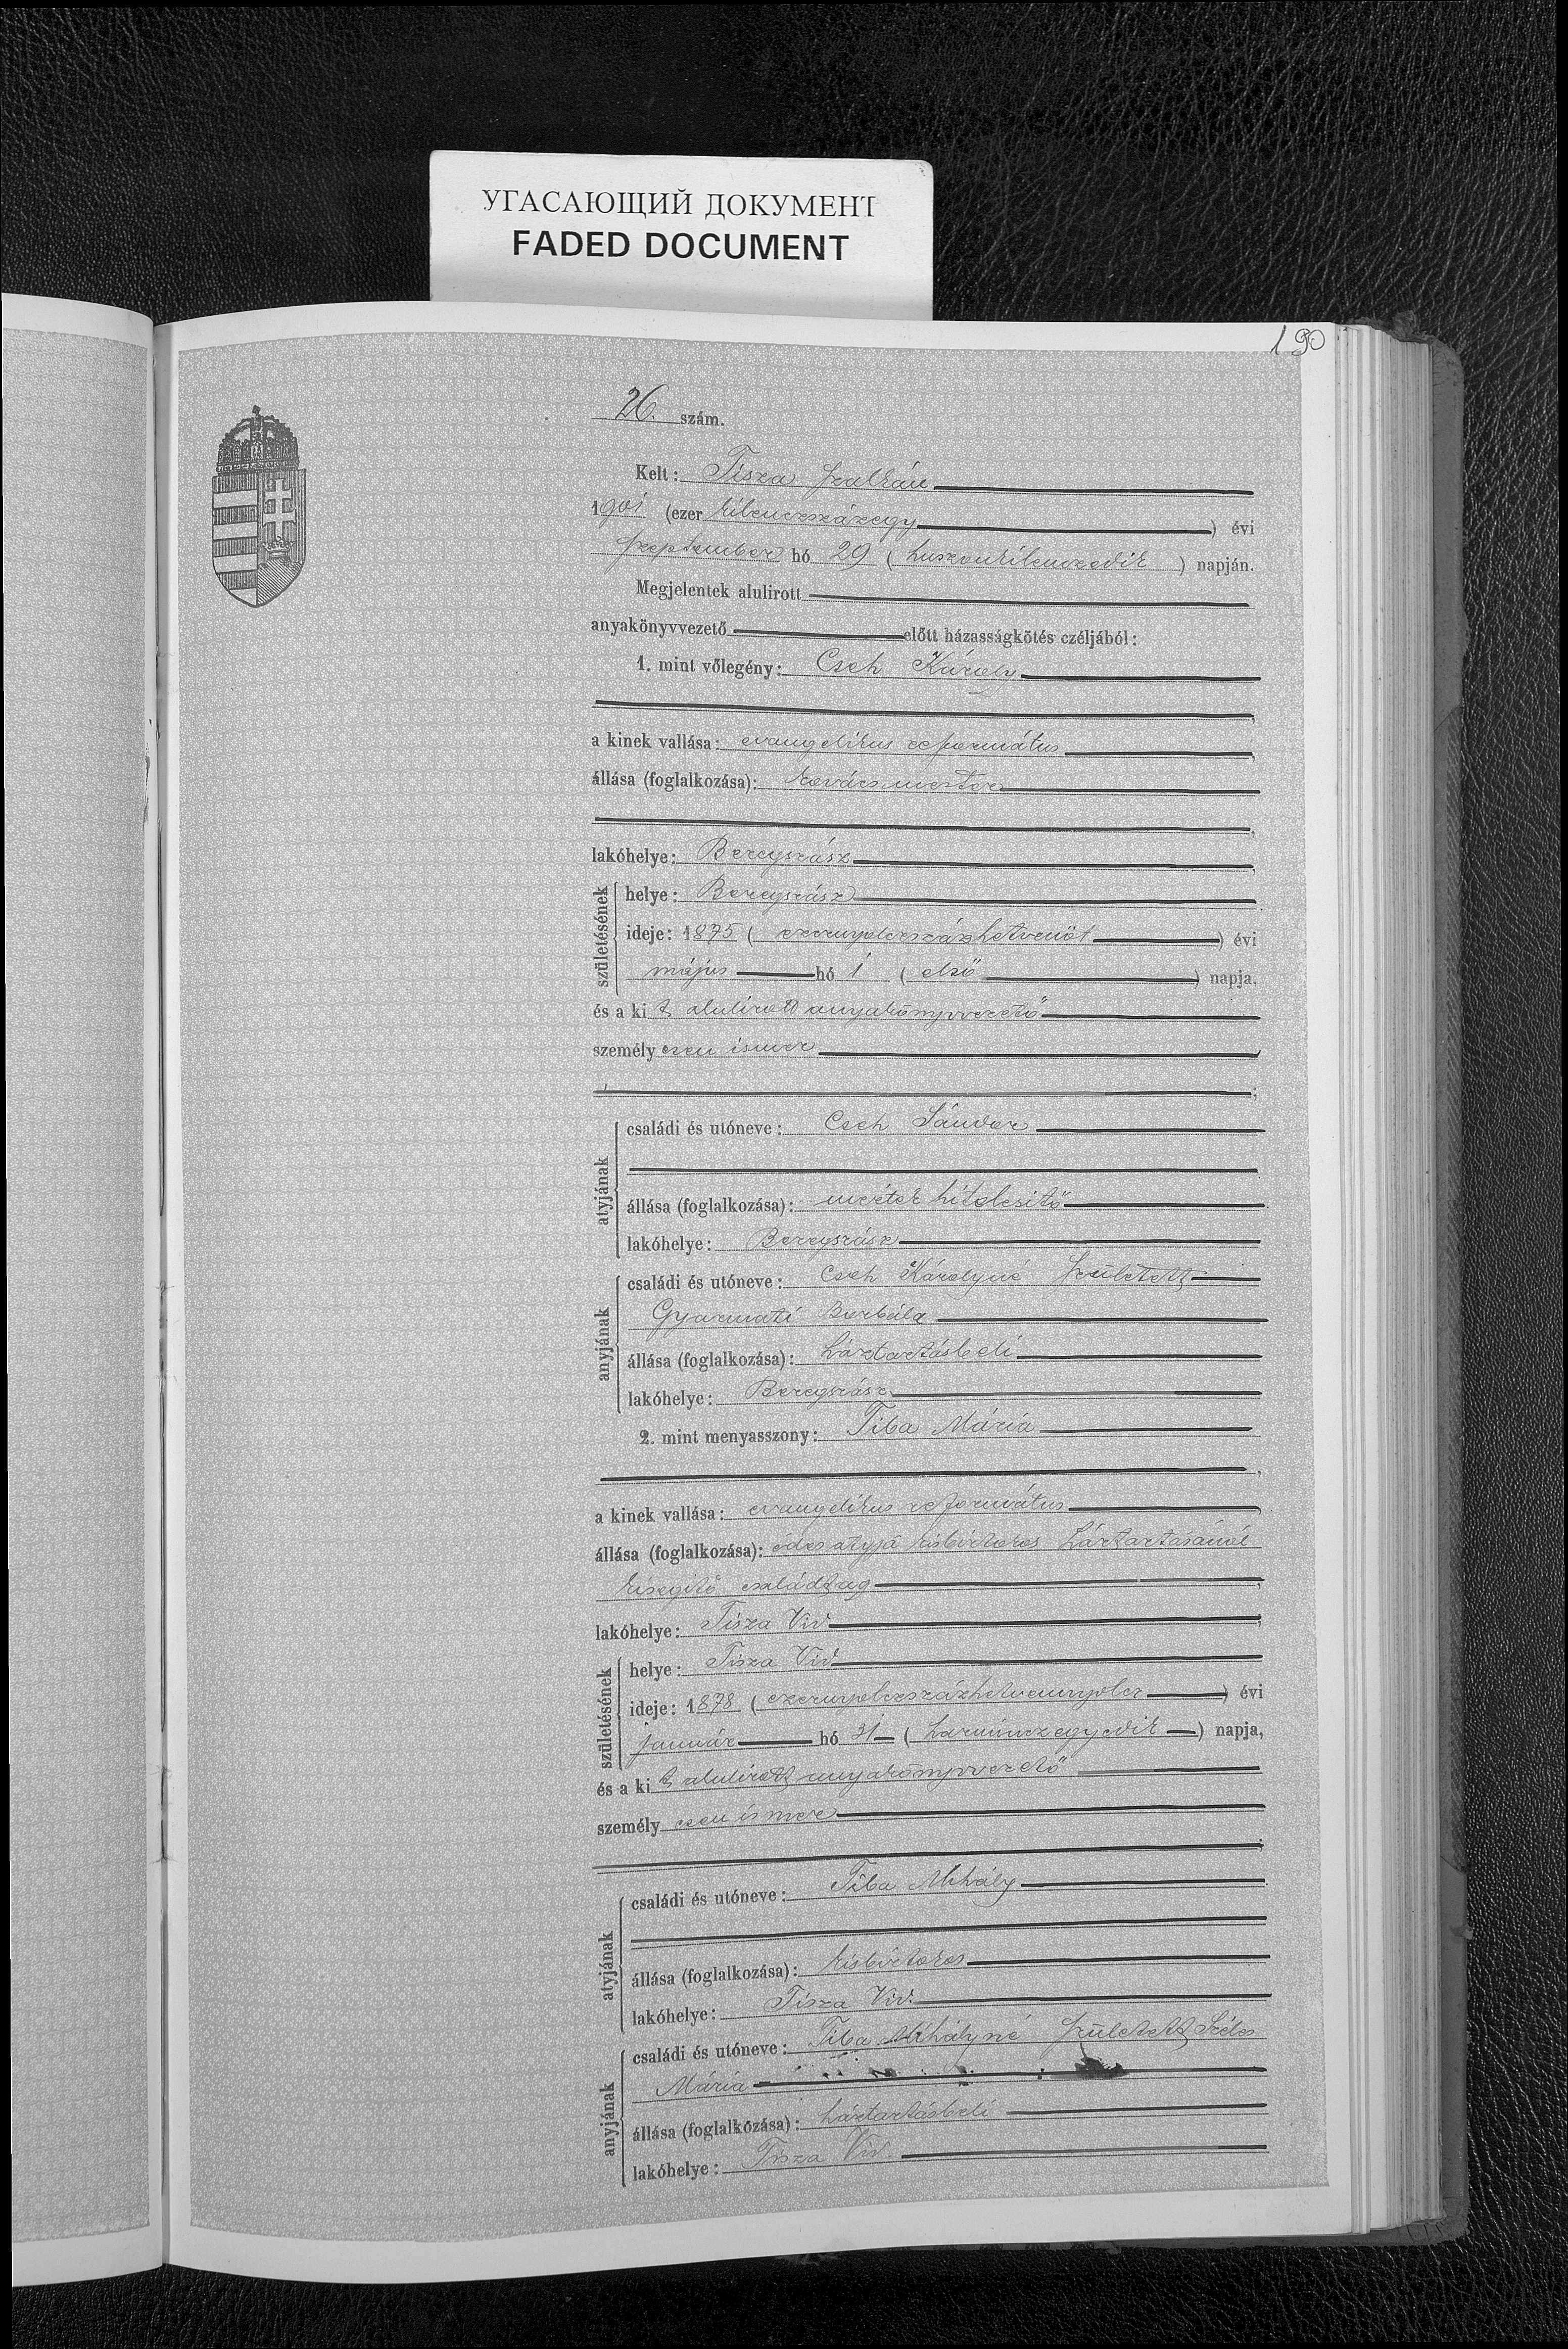 УГАСАЮЩИЙ ДОКУМЕНТ
FADED DOCUMENT
190
26. szám.
Kelt: Tisza Szalkán
1901 (ezer kilenczszázegy) évi
szeptember hó 29 (huszonkilenczedik) napján.
Megjelentek alulirott
anyakönyvvezető előtt házasságkötés czéljából:
1. mint vőlegény: Cseh Károly
a kinek vallása: evangelikus református
állása (foglalkozása): kovács mester
lakóhelye: Beregszász
születésének
helye: Beregszász
ideje: 1875 (ezernyolczszázhetvenöt) évi
május hó 1 (első) napja,
és a ki t alulirott anyakönyvvezető
személy esen ismer
atyjának
családi és utóneve: Cseh Sándor
állása (foglalkozása): mérték hitelesitő
lakóhelye: Beregszász
anyjának
családi és utóneve: Cseh Károlyné született
Gyarmati Borbála
állása (foglalkozása): háztartásbeli
lakóhelye: Beregszász
2. mint menyasszony: Tiba Mária
a kinek vallása: evangelikus református
állása (foglalkozása): édes atyja kisbirtokos háztartásánál
kisegitő családtag
lakóhelye: Tisza Vid
születésének
helye: Tisza Vid
ideje: 1878 (ezernyolczszázhetvennyolcz) évi
január hó 31 (harminczegyedik) napja,
és a ki t alulirott anyakönyvvezető
személy esen ismer
atyjának
családi és utóneve: Tiba Mihály
állása (foglalkozása): kisbirtokos
lakóhelye: Tisza Vid
anyjának
családi és utóneve: Tiba Mihályné született Széles
Mária
állása (foglalkozása): háztartásbeli
lakóhelye: Tisza Vid